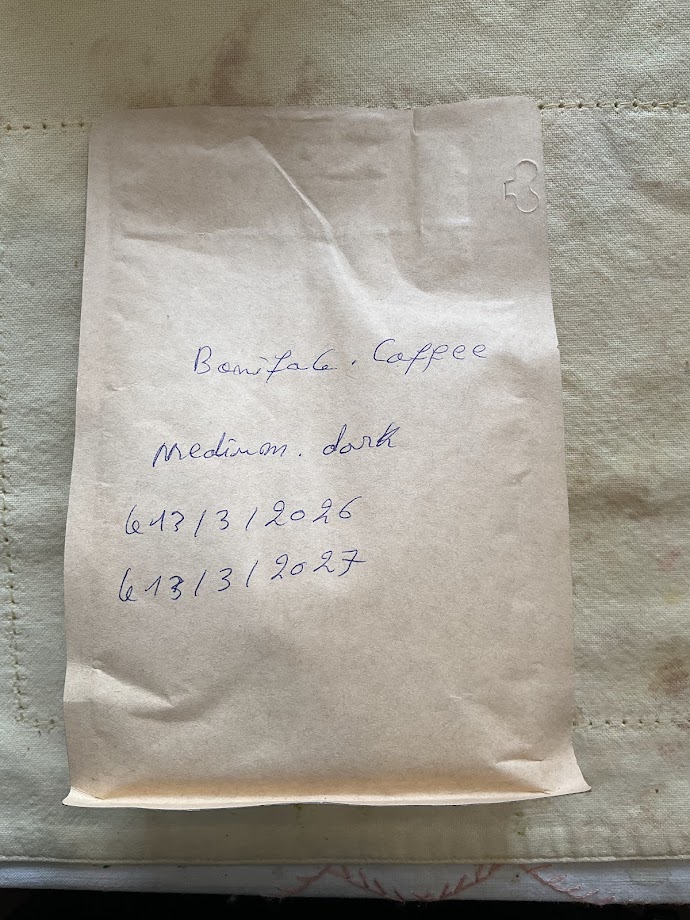 Bonifab. Coffee
medium. dark
le 13/3/2026
le 13/3/2027